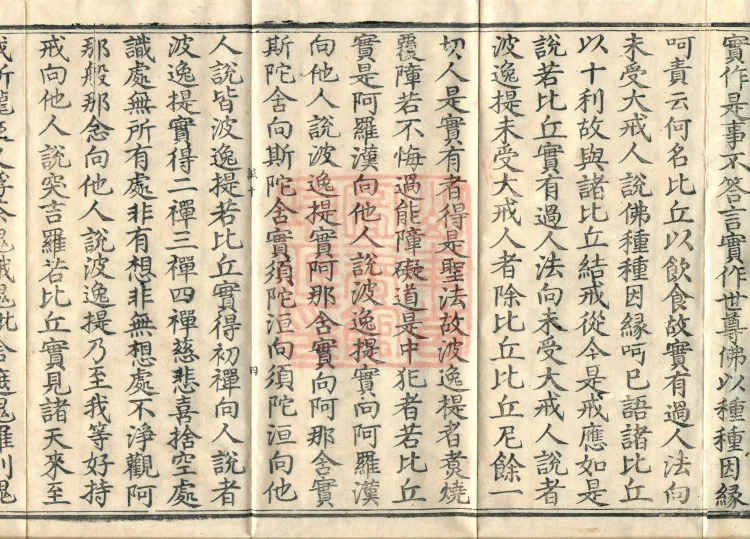 實作是事不答言實作世尊佛以種種因緣
呵責云何名比丘以飲食故實有過人法向
未受大戒人說佛種種因緣呵已語諸比丘
以十利故與諸比丘結戒從今是戒應如是
說若比丘實有過人法向未受大戒人說者
波逸提未受大戒人者除比丘比丘尼餘一
切人是實有者得是聖法故波逸提者煑燒
覆障若不悔過能障礙道是中犯者若比丘
實是阿羅漢向他人說波逸提實向阿羅漢
向他人說波逸提實阿那含實向阿那含實
斯陀含向斯陀含實須陀洹向須陀洹向他
人說皆波逸提若比丘實得初禪向人說者
波逸提實得二禪三禪四禪慈悲喜捨空處
識處無所有處非有想非無想處不淨觀阿
那般那念向他人說波逸提乃至我等好持
戒向他人說突吉羅若比丘實見諸天來至